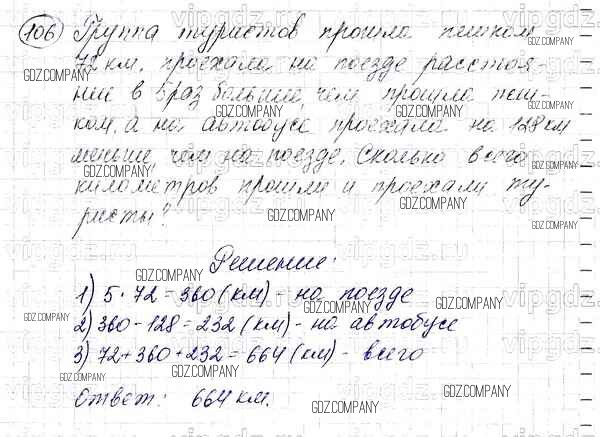 106 Группа туристов прошла пешком
72 км, проехала на поезде расстоя-
ние в 5 раз больше, чем прошла пеш-
ком, а на автобусе проехала на 128 км
меньше, чем на поезде. Сколько всего
километров прошли и проехали ту-
ристы?
Решение:
1) 5 · 72 = 360 (км) - на поезде
2) 360 - 128 = 232 (км) - на автобусе
3) 72 + 360 + 232 = 664 (км) - всего
Ответ: 664 км.
GDZ.COMPANY
vipgdz.ru